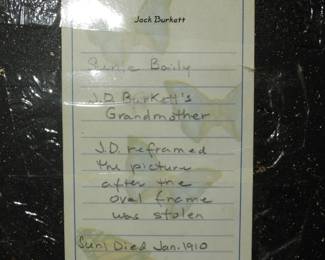 Jack Burkett
Baily
J.D. Burkett's
Grandmother
J.D. reframed
the picture
after the
oval frame
was stolen
Died Jan. 1910